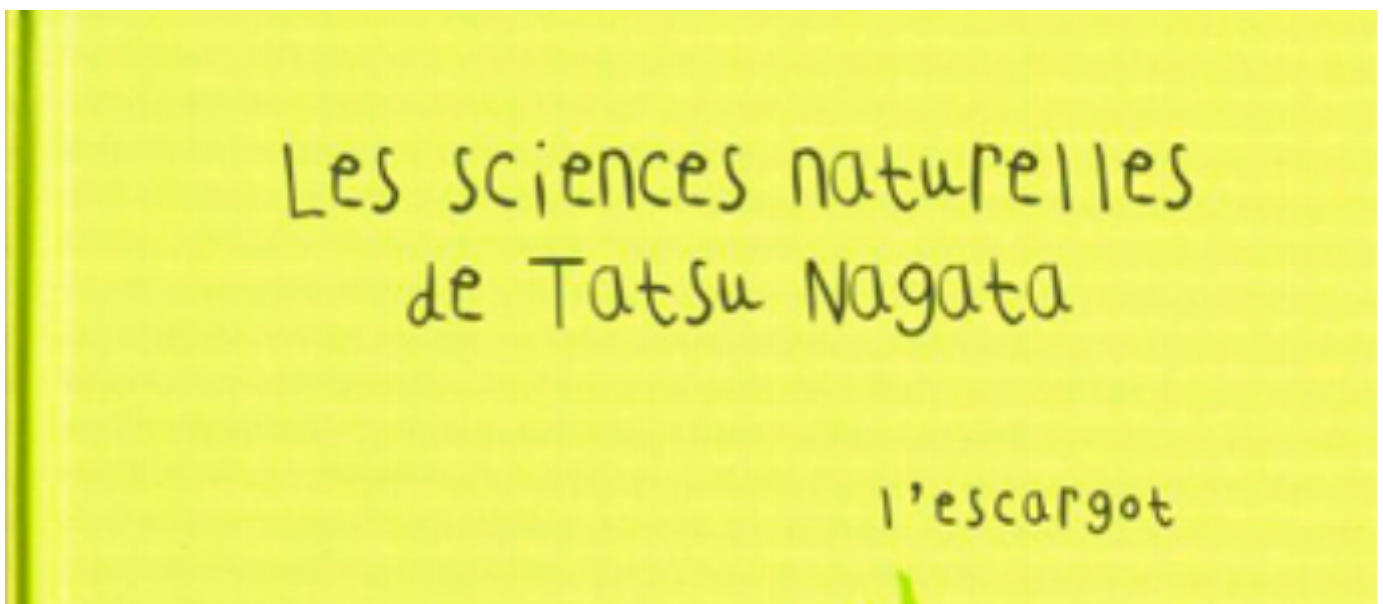 Les sciences naturelles
de Tatsu Nagata
l'escargot